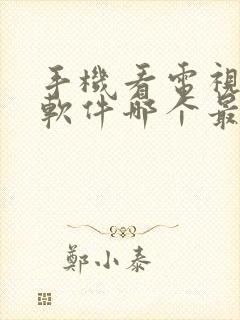 手機看電視
軟件哪個最
鄭小泰